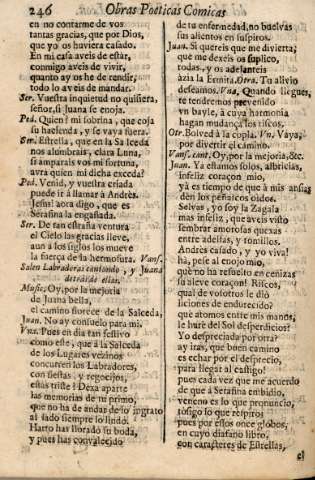 246 Obras Poeticas Comicas
en no contarme de vos
tantas gracias, que por Dios,
que yo os huviera casado.
En mi casa aveis de estar,
conmigo aveis de vivir,
quanto ay os he de rendir,
todo lo aveis de mandar.
Ser. Vuestra inquietud no quisiera,
señor, si Juana se enoja.
Ped. Quien? mi sobrina, que coja
su hacienda, y se vaya fuera.
Estrella, que en la Salceda
nos alumbrais, clara Luna,
si amparais vos mi fortuna
avra quien mi dicha exceda?
Ped. Venid, y vuestra criada
puede ir á llamar à Andrès.
Jesus! aora digo, que es
Serafina la engañada.
Ser. De tan estraña ventura
el Cielo las gracias lleve,
aun à los siglos los mueve
la fuerça de la hermosura. Vans.
Salen Labradoras cantando, y Juana
detràs de ellas.
Music. Oy, por la mejoria
de Juana bella,
el camino florece de la Salceda,
Juan. No ay consuelo para mi.
Vna. Pues en dia tan festivo
como este, que à la Salceda
de los Lugares vezinos
concurren los Labradores,
con fiestas, y regocijos,
estàs triste? Dexa aparte
las memorias de tu primo,
que no ha de andar de lo ingrato
al lado siempre lo lindo.
Harto has llorado su boda,
y pues has convalecido
de tu enfermedad, no buelvas
sus alientos en suspiros.
Juan. Si quereis que me divierta;
que me dexeis os suplico,
todas, y os adelanteis
àzia la Ermita. Otra. Tu alivio
deseamos. Vna. Quando llegues,
te tendremos prevenido
vn bayle, à cuya harmonia
hagan mudança los riscos.
Otr. Bolved à la copla. Vn. Vaya,
por divertir el camino.
Vans. cant. Oy, por la mejoria, &c.
Juan. Ya estamos solos, albricias,
infeliz coraçon mio,
yà es tiempo de que à mis ansias
dèn los peñascos oidos.
Selvas, yo soy la Zagala
mas infeliz, que aveis visto
sembrar amorosas quexas
entre adelfas, y tomillos.
Andrès casado, y yo viva!
hà, pese al enojo mio,
què no ha resuelto en cenizas
su aleve coraçon! Riscos,
qual de vosotros le diò
liciones de endurecido?
que atomos entre mis manos,
le hurè del Sol desperdicios?
Yo despreciada por otra?
ay iras, que buen camino
es echar por el desprecio,
para llegar al castigo!
pues cada vez que me acuerdo
de que à Serafina embidio,
veneno es lo que pronuncio,
tòsigo lo que respiro
pues por essos once globos,
en cuyo diafano libro,
con caracteres de Estrellas,
el